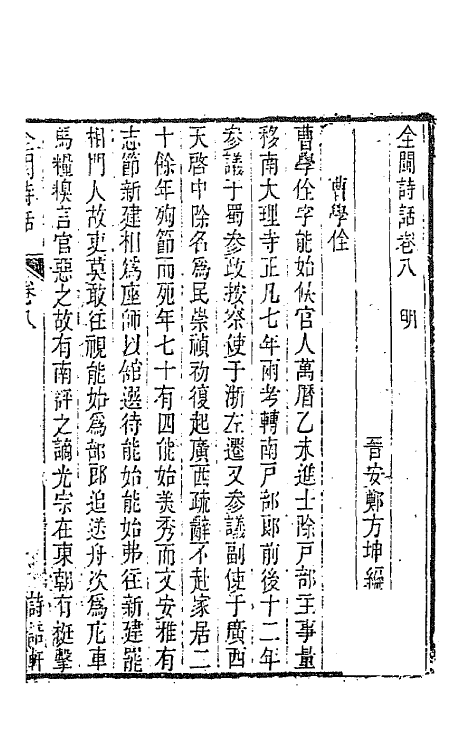 全閩詩話卷八　明
晉安鄭方坤編
曹學佺
曹學佺字能始候官人萬曆乙未進士除戸部主事量
移南大理寺正凡七年兩考轉南戸部郎前後十二年
參議于蜀參政按察使于浙左遷又參議副使于廣西
天啓中除名爲民崇禎初復起廣西疏辭不赴家居二
十餘年殉節而死年七十有四能始美秀而文安雅有
志節新建相爲座師以館選待能始能始弗往新建罷
相門人故吏莫敢往視能始爲部郎追送舟次爲庀車
馬糧糗言官惡之故有南評之謫光宗在東朝有挺擊
全閩詩話
卷八
詩話軒